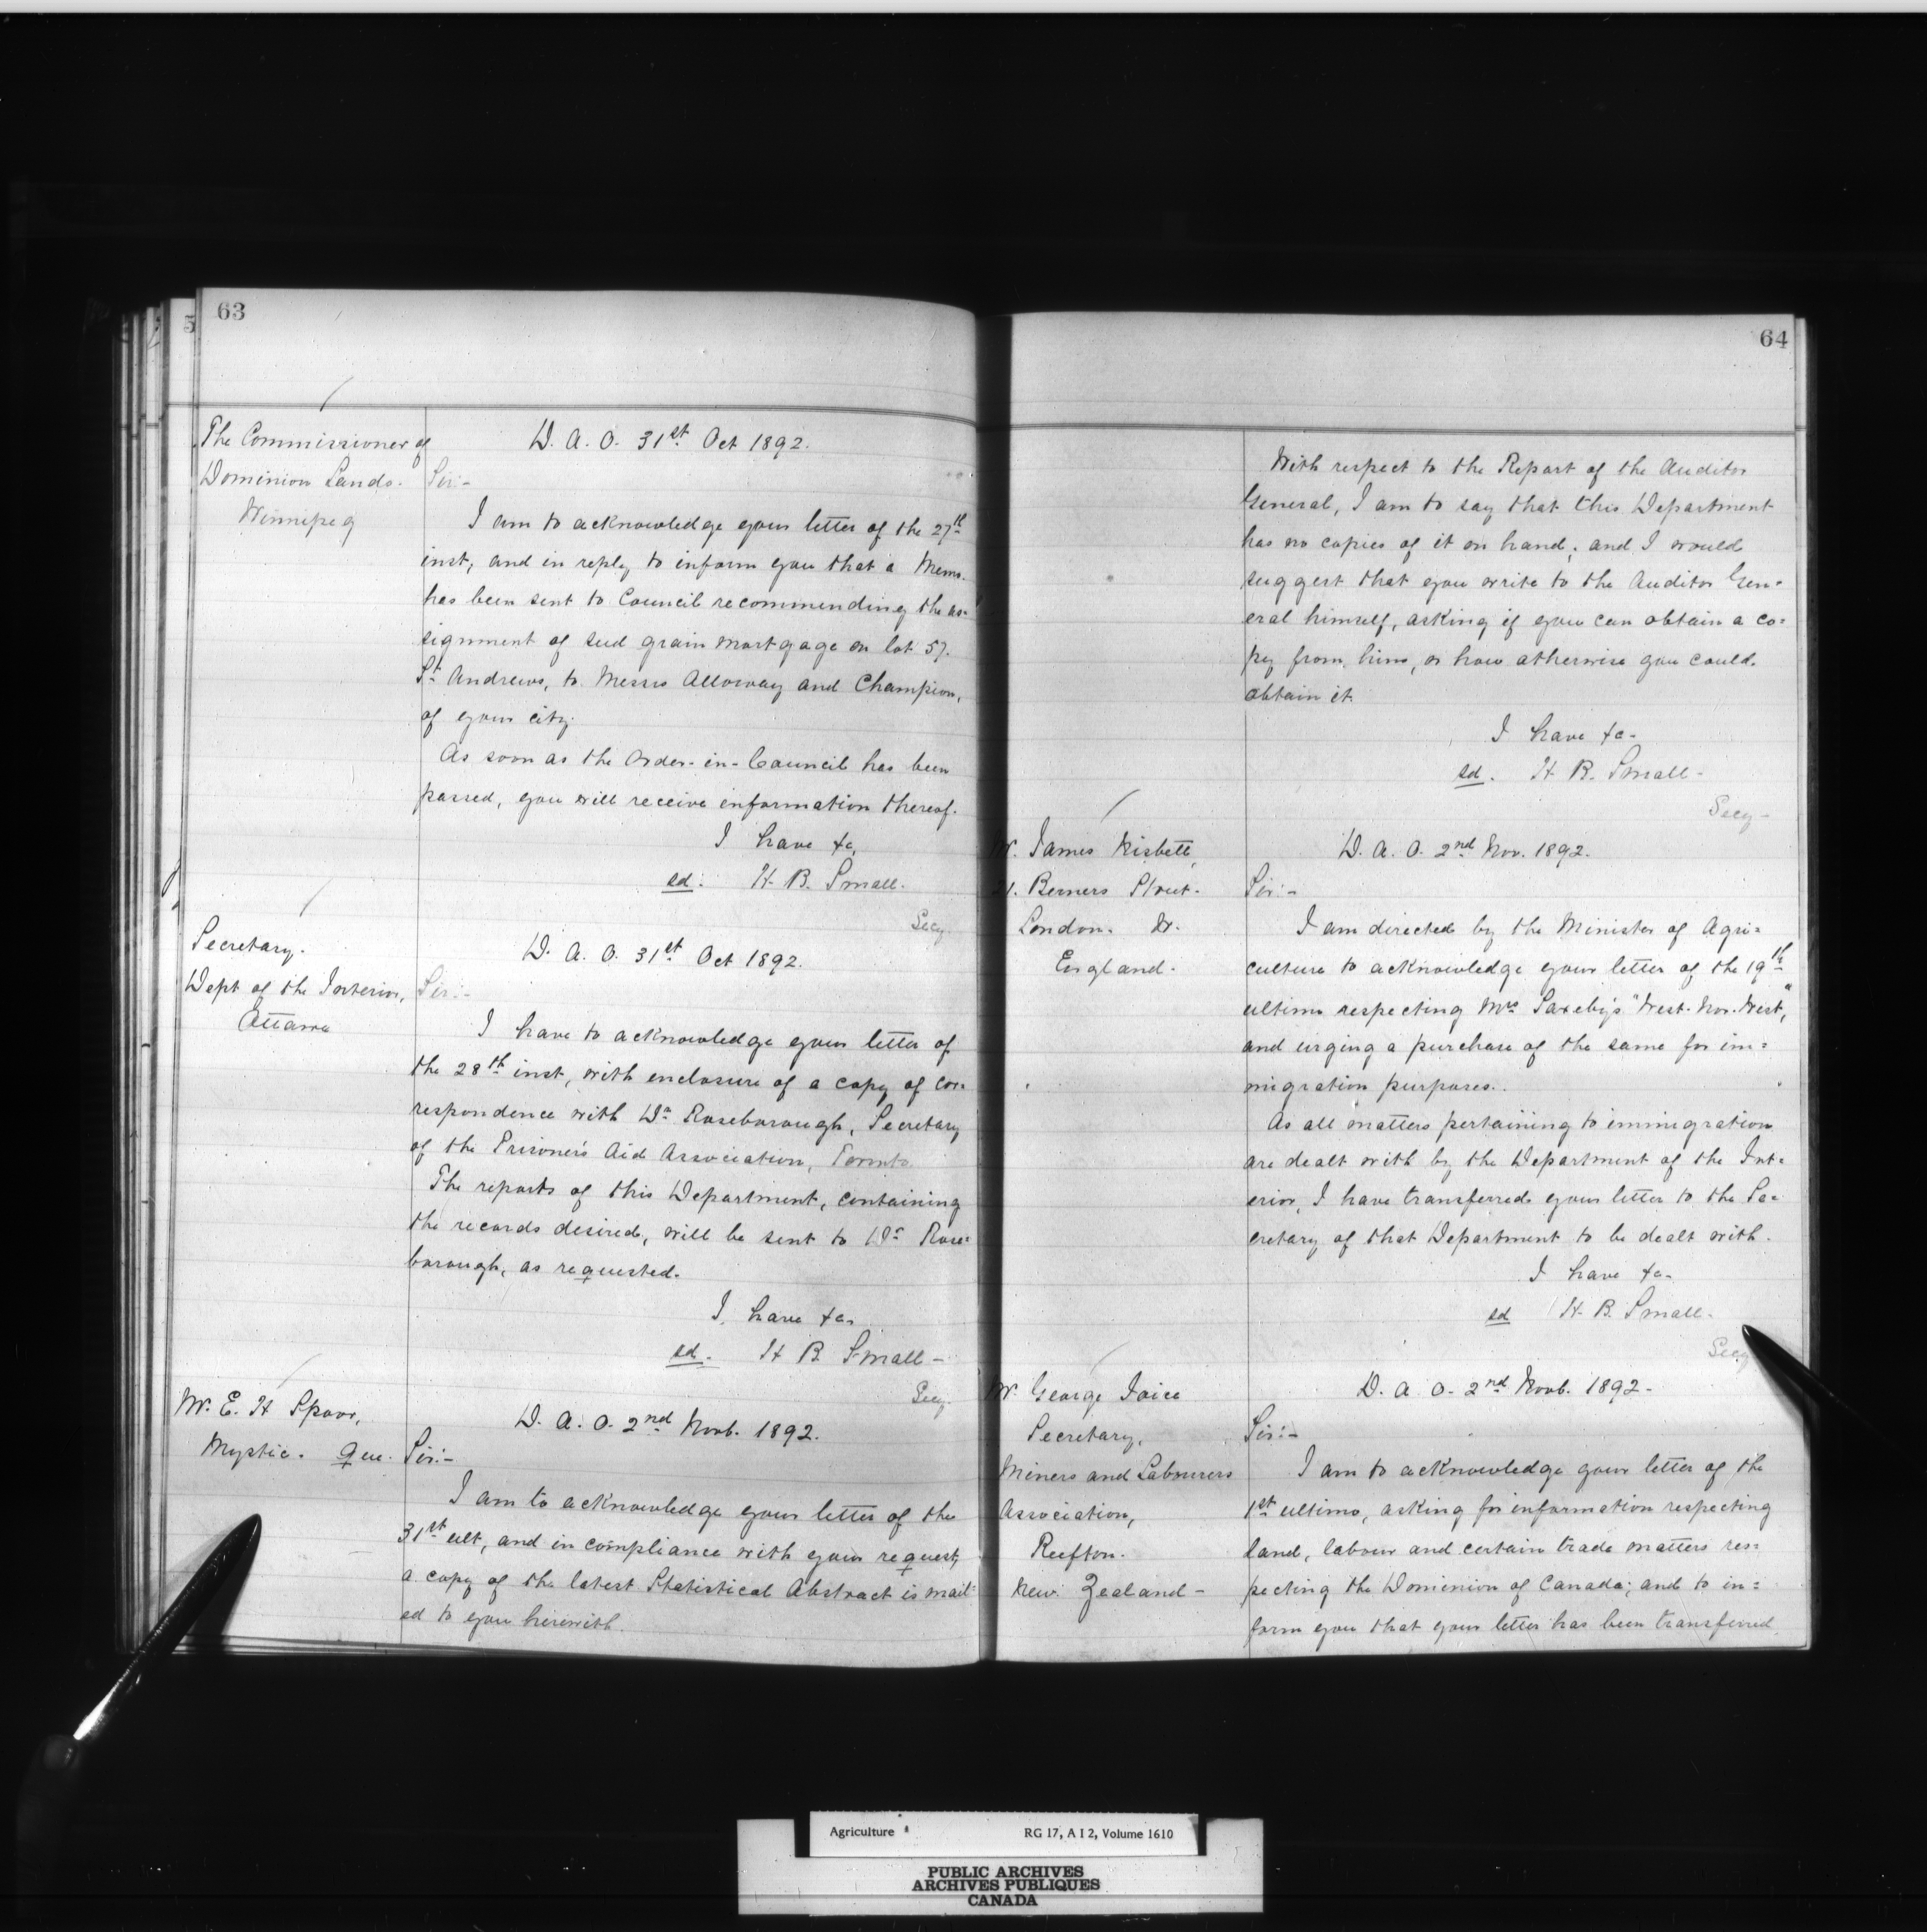 63
The Commissioner of
Dominion Lands.
Winnipeg
D. A. O. 31st Oct 1892.
Sir:-
I am to acknowledge your letter of the 27th
inst, and in reply to inform you that a Memo.
has been sent to Council recommending the as=
signment of seed grain mortgage on lot 57.
St Andrews, to Messrs Alloway and Champion,
of your city.
As soon as the Order-in-Council has been
passed, you will receive information thereof.
I have &c,
sd. H. B. Small.
Secy.
Secretary.
Dept of the Interior,
Ottawa
D. A. O. 31st Oct 1892.
Sir:-
I have to acknowledge your letter of
the 28th inst, with enclosure of a copy of cor=
respondence with Dr Roseborough, Secretary
of the Prisoner's Aid Association, Toronto.
The reports of this Department, containing
the records desired, will be sent to Dr Rose=
borough, as requested.
I have &c,
sd. H B. Small -
Secy.
Mr. E. H Spoor,
Mystic. Que.
D. A. O. 2nd Novb. 1892.
Sir:-
I am to acknowledge your letter of the
31st ult, and in compliance with your request,
a copy of the latest Statistical Abstract is mail=
ed to you herewith.
64
With respect to the Report of the Auditor
General, I am to say that this Department
has no copies of it on hand; and I would
suggest that you write to the Auditor Gen=
eral himself, asking if you can obtain a co=
py from him, or how otherwise you could
obtain it.
I have &c-
sd. H B. Small -
Secy -
Mr. James Nisbett,
21. Berners Street.
London. W.
England.
D. A. O. 2nd Nov. 1892.
Sir:-
I am directed by the Minister of Agri=
culture to acknowledge your letter of the 19th
ultimo respecting Mrs Saxeby's "West-Nor-West",
and urging a purchase of the same for im=
migration purposes.
As all matters pertaining to immigration
are dealt with by the Department of the Int=
erior, I have transferred your letter to the Se=
cretary of that Department to be dealt with.
I have &c-
sd H. B. Small.
Secy
Mr. George
Secretary,
Miners and Labourers
Association,
Reefton.
New Zealand -
D. A. O. 2nd Novb. 1892 -
Sir:-
I am to acknowledge your letter of the
1st ultimo, asking for information respecting
land, labour and certain trade matters res=
pecting the Dominion of Canada; and to in=
form you that your letter has been transferred
Agriculture RG 17, A I 2, Volume 1610
PUBLIC ARCHIVES
ARCHIVES PUBLIQUES
CANADA